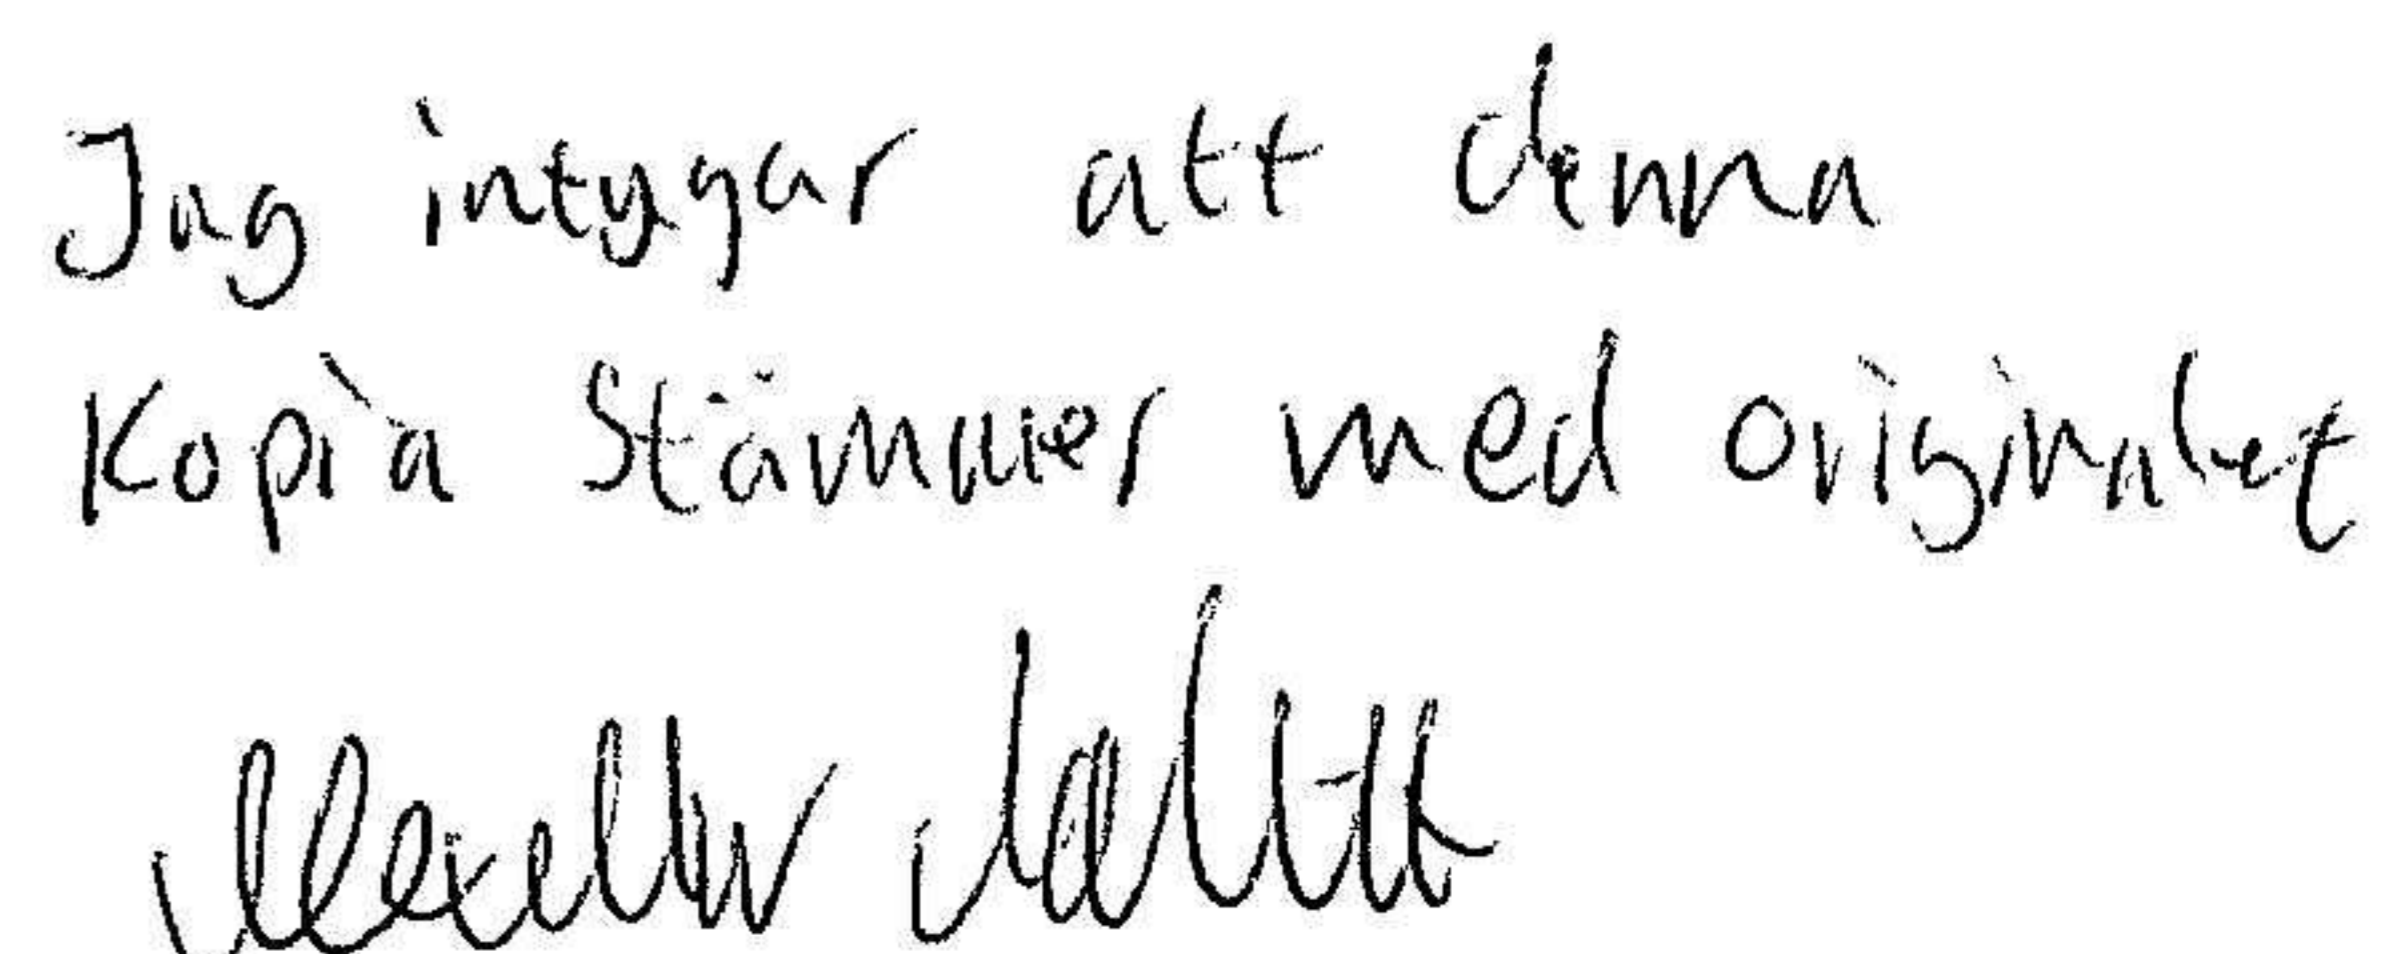 Jag intygar att denna
Kopia Stämmer med originalet